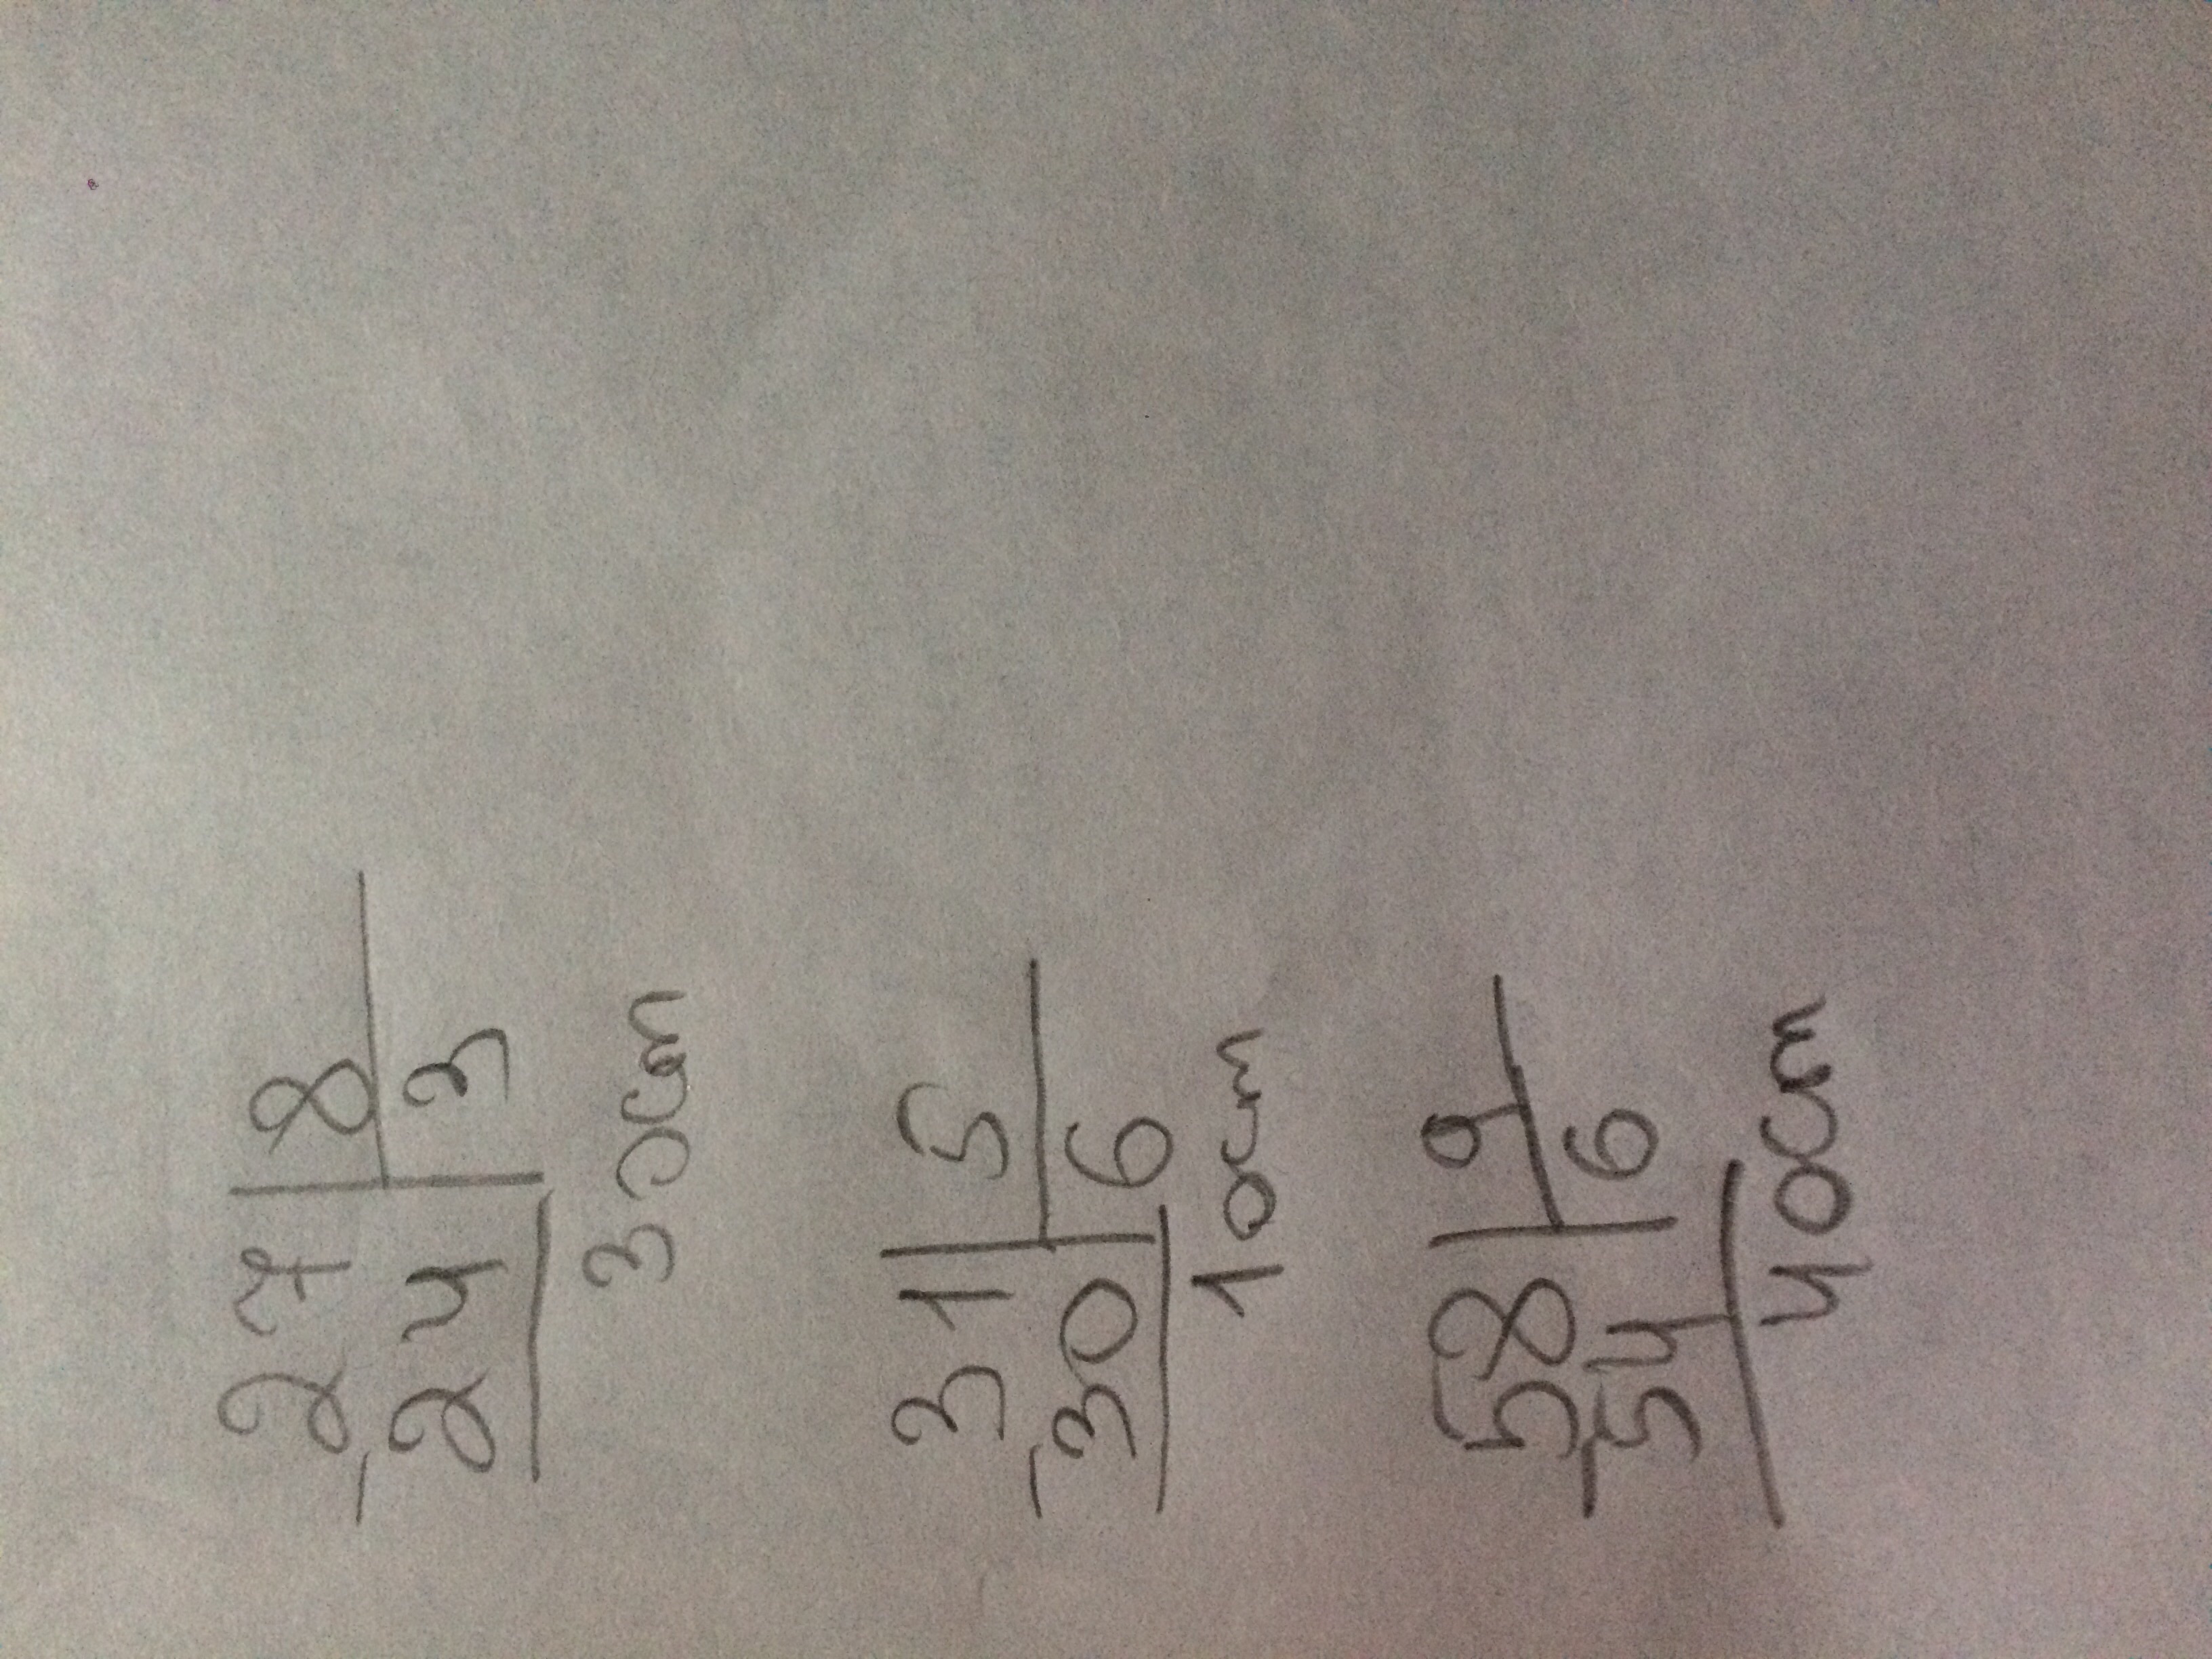 27|8
-24|3
3 ост
31|5
-30|6
1 ост
58|9
-54|6
4 ост